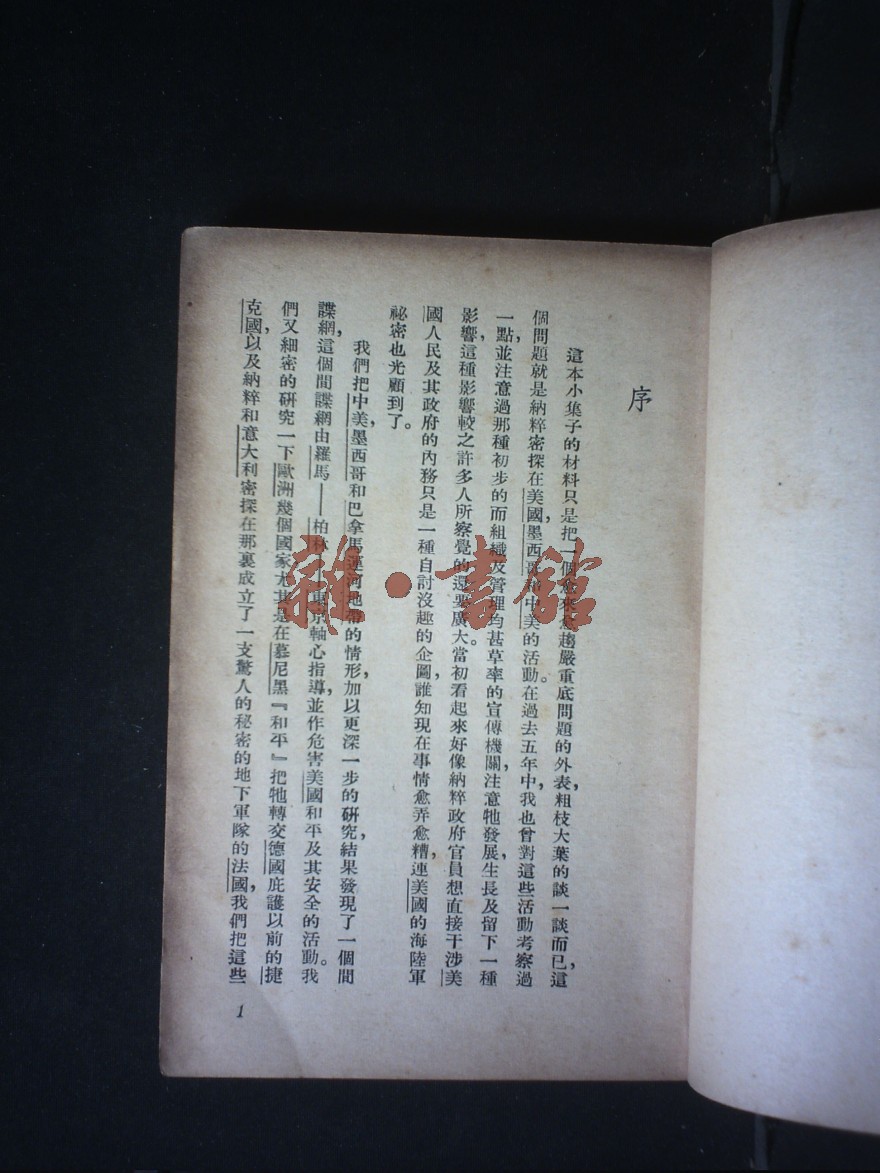 序
這本小集子的材料只是把一個愈來愈趨嚴重底問題的外表,粗枝大葉的談一談而已,這
個問題就是納粹密探在美國,墨西哥和中美的活動。在過去五年中,我也曾對這些活動考察過
一點,並注意過那種初步的而組織及管理均甚草率的宣傳機關,注意牠發展,生長及留下一種
影響,這種影響較之許多人所察覺的還要廣大。當初看起來好像納粹政府官員想直接干涉美
國人民及其政府的內務只是一種自討沒趣的企圖,誰知現在事情愈弄愈糟,連美國的海陸軍
祕密也光顧到了。
我們把中美,墨西哥和巴拿馬運河地帶的情形,加以更深一步的研究,結果發現了一個間
諜網,這個間諜網由羅馬——柏林——東京軸心指導,並作危害美國和平及其安全的活動。我
們又細密的研究一下歐洲幾個國家尤其是在慕尼黑『和平』把牠轉交德國庇護以前的捷
克國,以及納粹和意大利密探在那裏成立了一支驚人的秘密的地下軍隊的法國,我們把這些
1
雜·書館